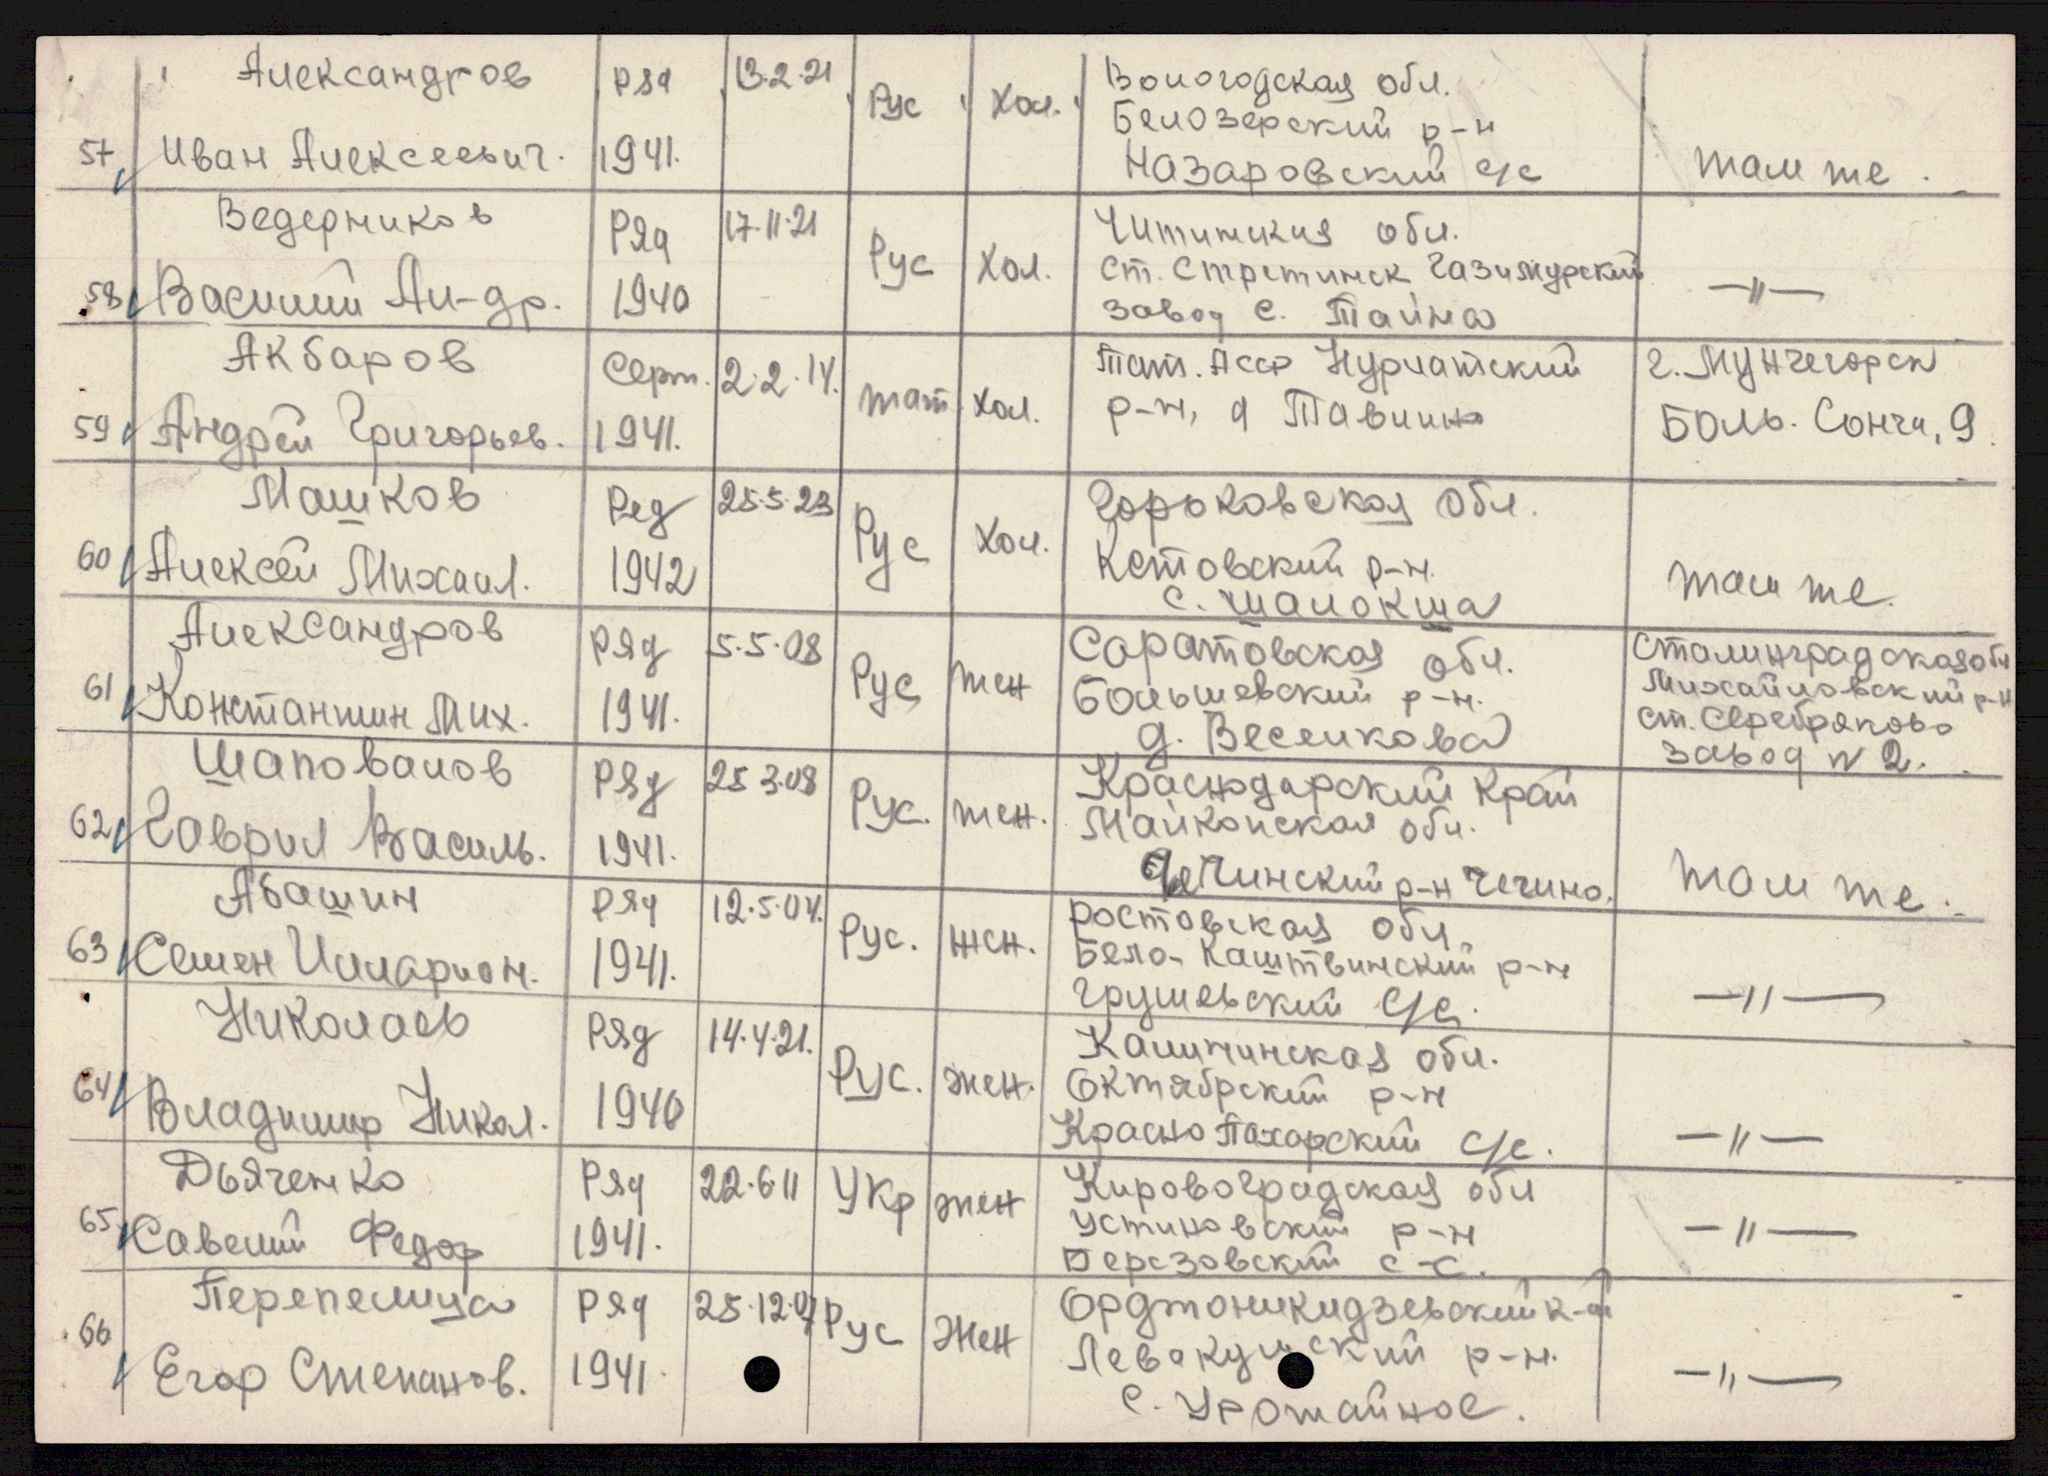 57 Александров Иван Алексеевич. Ряд 1941. 13.2.21 Рус Хол. Вологодская обл.
Белозерский р-н
Назаровский с/с там же.
58 Ведерников Василий Ал-др. Ряд 1940 17.11.21 Рус Хол. Читинская обл.
ст. Стретинск Газимурский
завод с. Тайна —〃—
59 Акбаров Андрей Григорьев. Серт. 1941. 2.2.14. тат. Хол. Тат. Асср Нурлатский
р-н, д
г. Мунчегорск
Боль. Сонча, 9.
60 Машков Алексей Михаил. Ряд 1942 25.5.23 Рус Хол. Горьковская обл.
Кстовский р-н.
с. Шалокша там же.
61 Александров Константин Мих. Ряд 1941. 5.5.08 Рус жен Саратовская обл.
Большевский р-н.
д. Веселкова
Сталинградская обл
Михайловский р-н
ст. Серебряково
Завод N 2.
62 Шаповалов Гаврил Василь. Ряд 1941. 25 3.08 Рус. жен. Краснодарский край
Майкопская обл.
р-н там же.
63 Абашин Семен Илларион. Ряд 1941. 12.5.04. Рус. жен. Ростовская обл
Бело-Каштвинский р-н
Грушевский с/с. —〃—
64 Николаев Владимир Никол. Ряд 1940 14.4.21. Рус. жен. Калининская обл.
Октябрский р-н
Красно Пахарский с/с. —〃—
65 Дьяченко Савелий Федор Ряд 1941. 22.6.11 Укр жен Кировоградская обл
Устиновский р-н
Березовский с-с. —〃—
66 Перепелица Егор Степанов. Ряд 1941. 25.12.07 Рус Жен Орджоникидзевский к-й
р-н.
с. Урожайное. —〃—